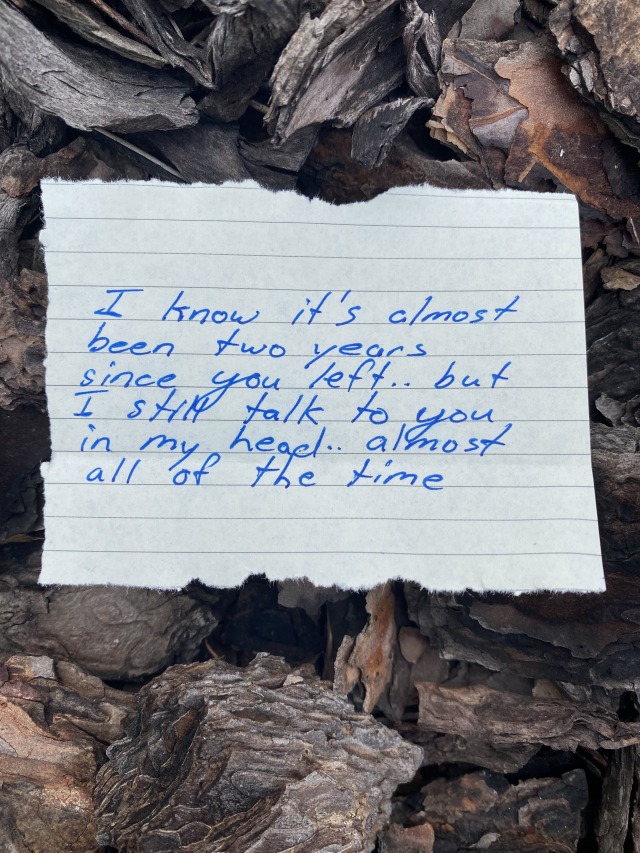 I know it's almost
been two years
since you left.. but
I still talk to you
in my head.. almost
all of the time